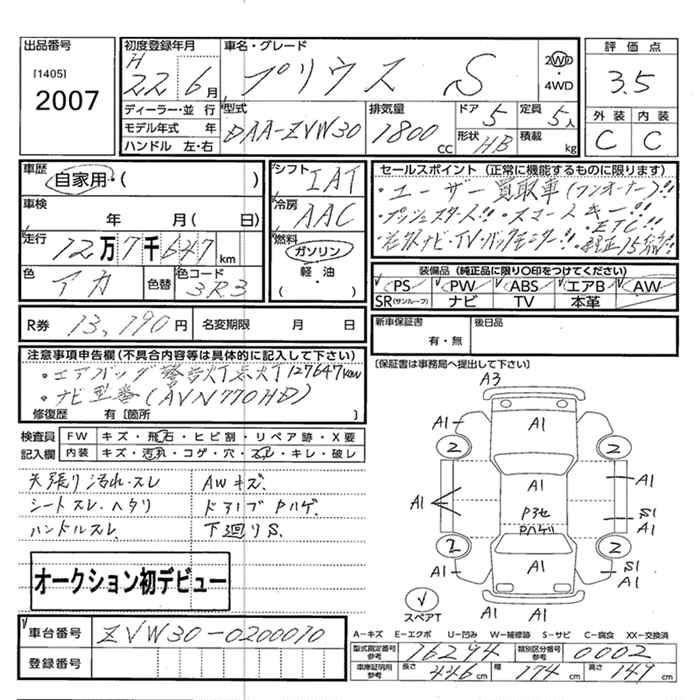 出品番号
[1405]
2007
初度登録年月
H 22年 6月
車名・グレード
プリウス S
2WD
・
4WD
評価点
3.5
外装 内装
C C
ディーラー・並行
モデル年式 年
ハンドル 左・右
型式
DAA-ZVW30
排気量
1800 CC
ドア 5
形状 HB
定員 5人
積載 kg
車歴
自家用・( )
車検
年 月( 日)
走行
12万7千647 km
色
アカ
色替
色コード
3R3
シフト
IAT
冷房
AAC
燃料
ガソリン
軽・油
( )
セールスポイント (正常に機能するものに限ります)
・ユーザー買取車(ワンオーナー)!!
・プッシュスタート!!・スマートキー!!
・社外ナビ・TV・バックモニター!!・ETC!!
・純正15
装備品 (純正品に限り〇印をつけてください)
PS PW ABS エアB AW
SR(サンルーフ) ナビ TV 本革
R券 13,790円
名変期限 月 日
新車保証書
有・無
後日品
[保証書は事務局へ提出して下さい]
注意事項申告欄(不具合内容等は具体的に記入して下さい)
・エアバッグ警告灯点灯127647km
・ナビ型番(AVN770HD)
修復歴 有[箇所 ]
検査員
記入欄
FW キズ・飛石・ヒビ割・リペア跡・X要
内装 キズ・汚れ・コゲ・穴・スレ・キレ・破レ
天張り汚れ・スレ
シートスレ・ヘタリ
ハンドルスレ
AWキズ.
ドアノブPハゲ.
下廻りS.
オークション初デビュー
車台番号
ZVW30-0200070
登録番号
A3
A1
A1
2
2
A1
A1
A1
P3セ
Pハゲリ
S1
A1
2
2
A1
A1
S1
A1
A1
A1
スペアT
A-キズ E-エクボ U-凹み W-補修跡 S-サビ C-腐食 XX-交換済
型式指定番号
参考
16294
類別区分番号
参考
0002
車庫証明用
参考
長さ 446 cm
幅 174 cm
高さ 149 cm